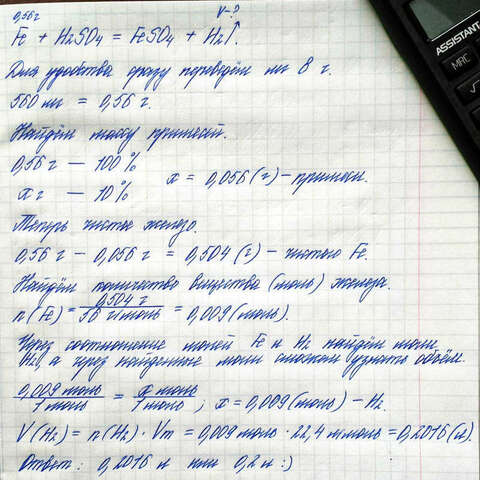 0,56г V-?
Fe + H2SO4 = FeSO4 + H2↑.
Для удобства сразу переведём мг в г.
560 мг = 0,56 г.
Найдём массу примесей.
0,56 г — 100 %
x г — 10 %
x = 0,056 (г) - примеси.
Теперь чистое железо.
0,56 г - 0,056 г = 0,504 (г) - чистого Fe.
Найдём количество вещества (моль) железа.
n(Fe) = 0,504 г / 56 г/моль = 0,009 (моль).
Через соотношение молей Fe и H2 найдём моли
H2, а через найденные моли сможем узнать объём.
0,009 моль / 1 моль = x моль / 1 моль ; x = 0,009 (моль) - H2.
V(H2) = n(H2) · Vm = 0,009 моль · 22,4 л/моль = 0,2016 (л).
Ответ: 0,2016 л или 0,2 л :)
ASSISTANT
MRC
√